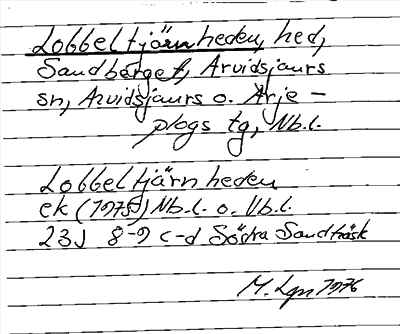 Lobbeltjärnheden, hed,
Sandberget, Arvidsjaurs
sn, Arvidsjaurs o. Arje-
plogs tg, Nb.l.
Lobbeltjärnheden
ek (1975) Nb.l. o. Vb.l.
23J 8-9 c-d Södra Sandträsk
M. Lgn 1976